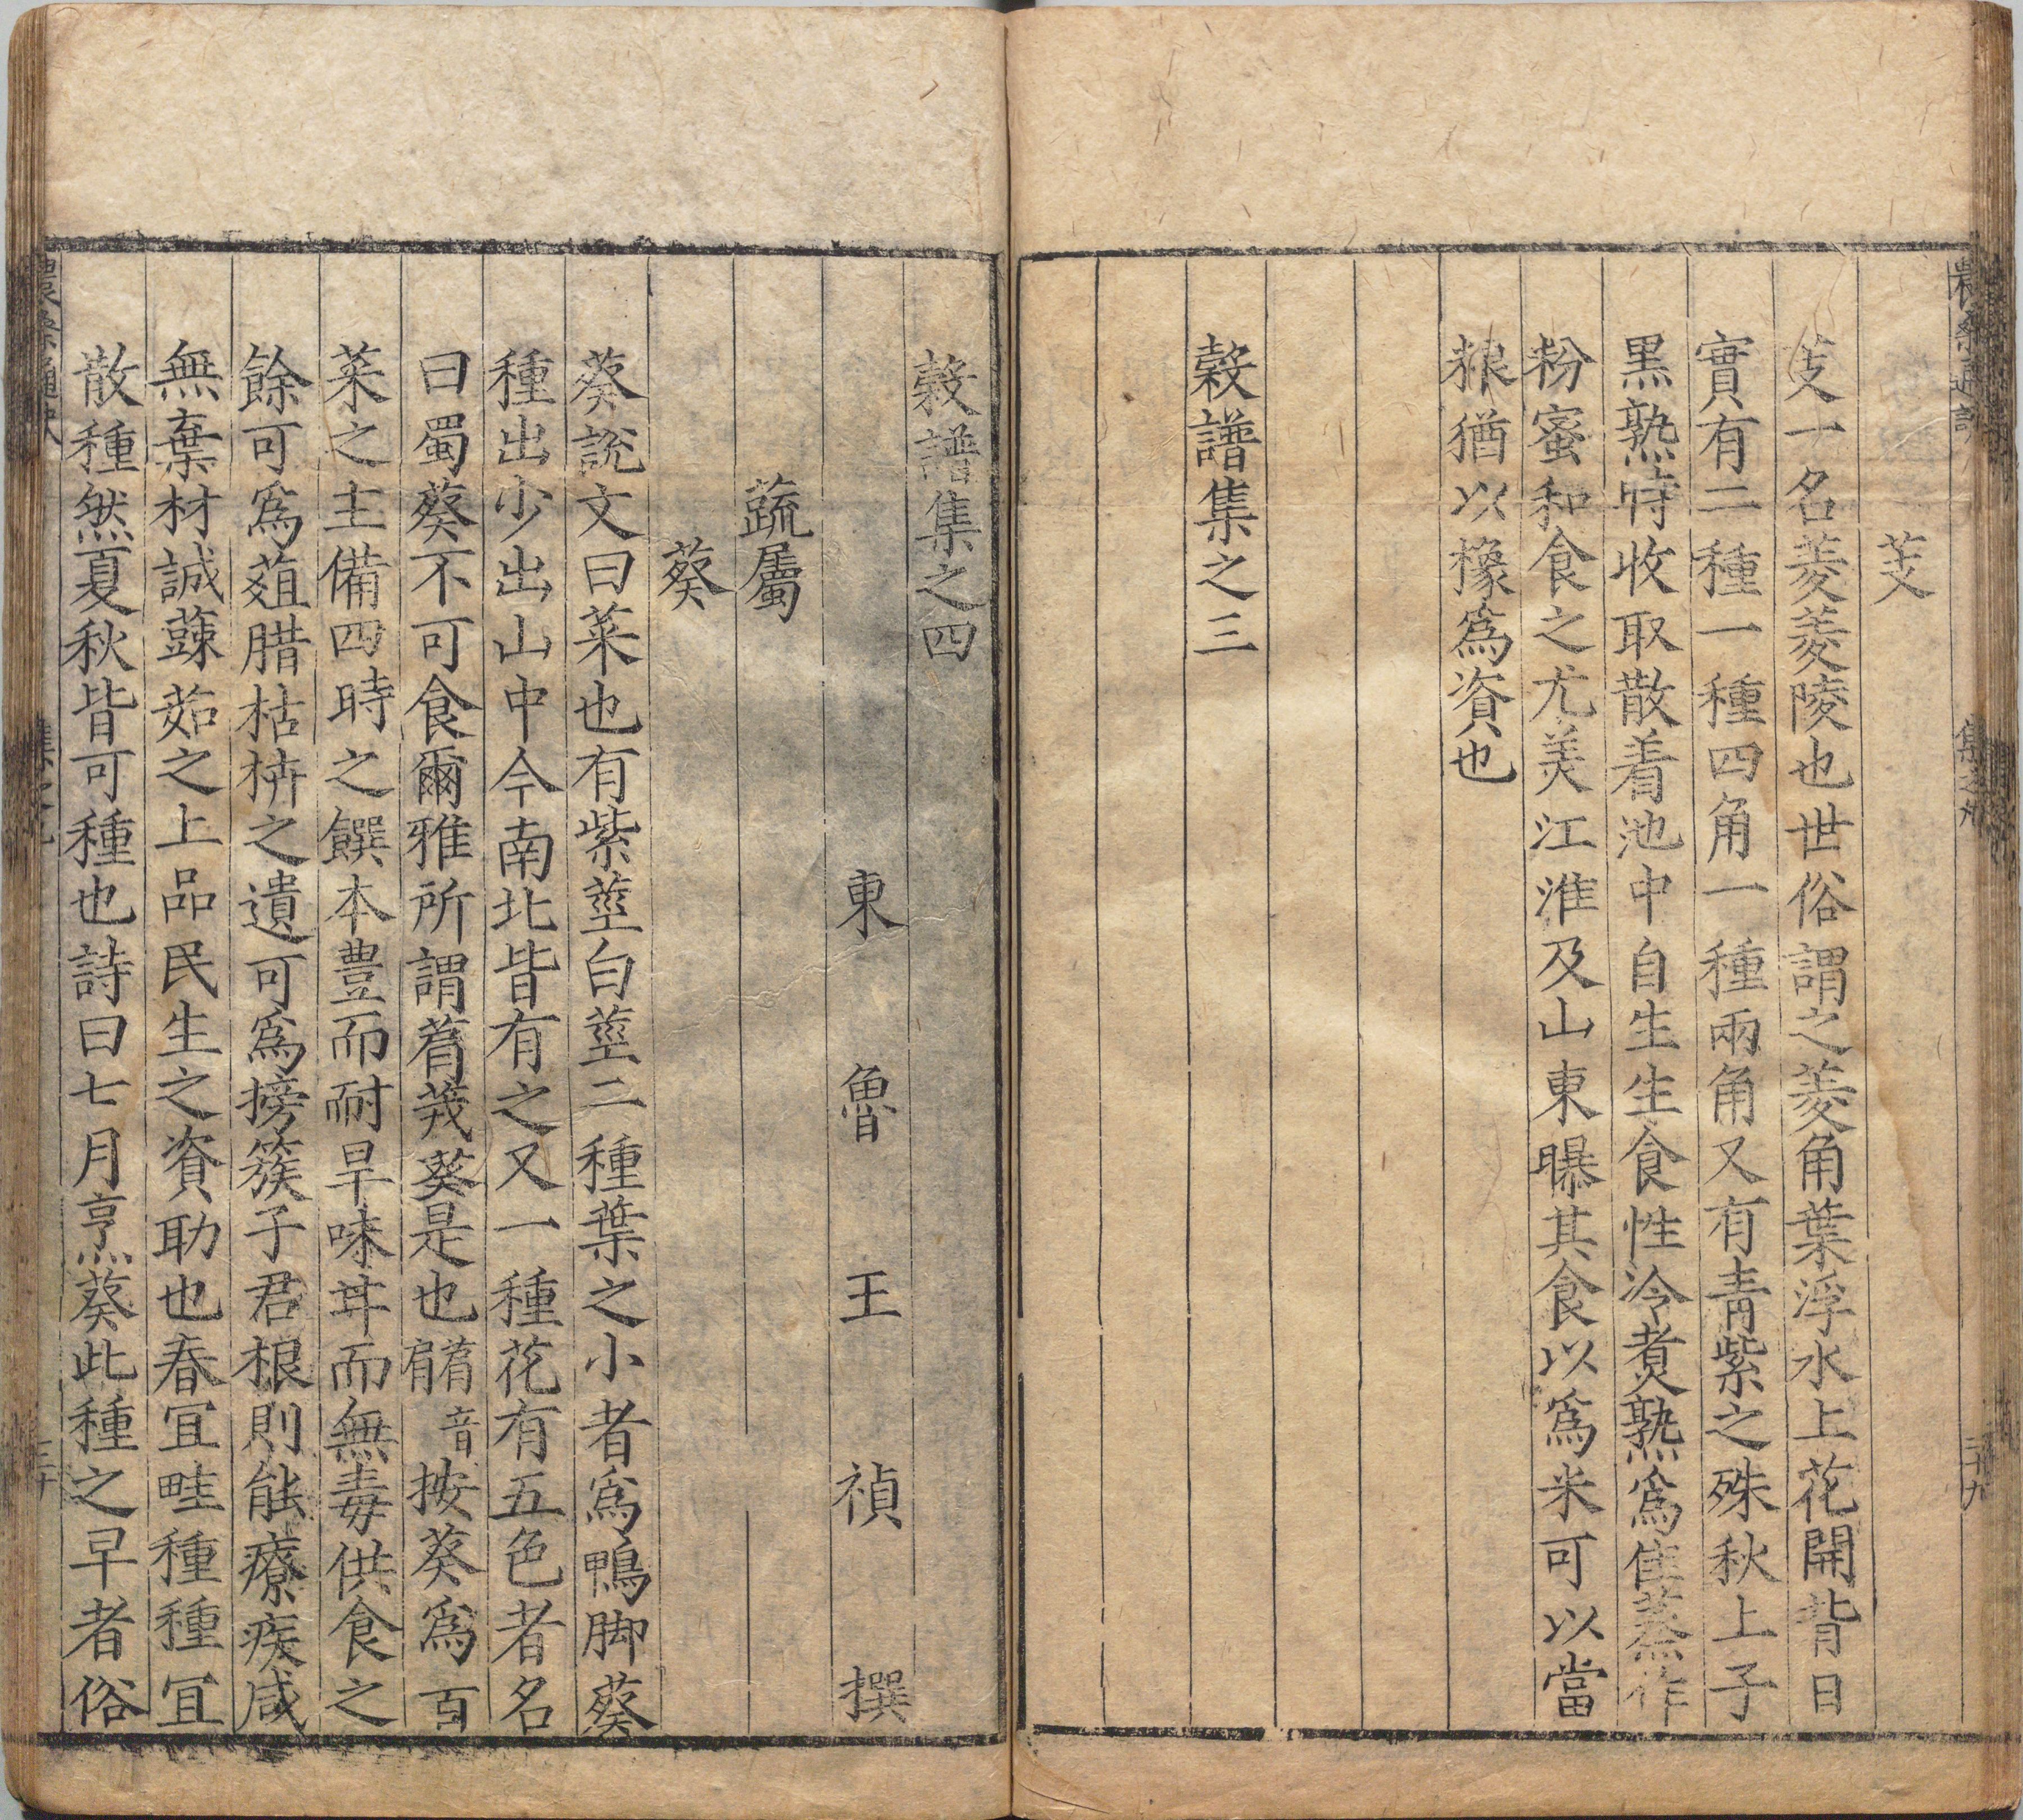 芰
芰一名菱菱陵也世俗謂之菱角葉浮水上花開背日
實有二種一種四角一種兩角又有青紫之殊秋上子
黑熟時收取散着池中自生生食性冷煮熟為佳蒸作
粉蜜和食之尤美江淮及山東曝其食以為米可以當
粮猶以橡為資也
榖譜集之三
榖譜集之四
東魯王禎撰
蔬屬
葵
葵說文曰菜也有紫莖白莖二種葉之小者為鴨脚葵
種出少出山中今南北皆有之又一種花有五色者名
曰蜀葵不可食爾雅所謂菺茙葵是也菺音肩按葵為百
菜之主備四時之饌本豊而耐旱味甘而無毒供食之
餘可為葅腊枯枿之遺可為搒簇子君根則能療疾咸
無棄材誠蔬茹之上品民生之資助也春宜畦種種宜
散種然夏秋皆可種也詩曰七月烹葵此種之早者俗